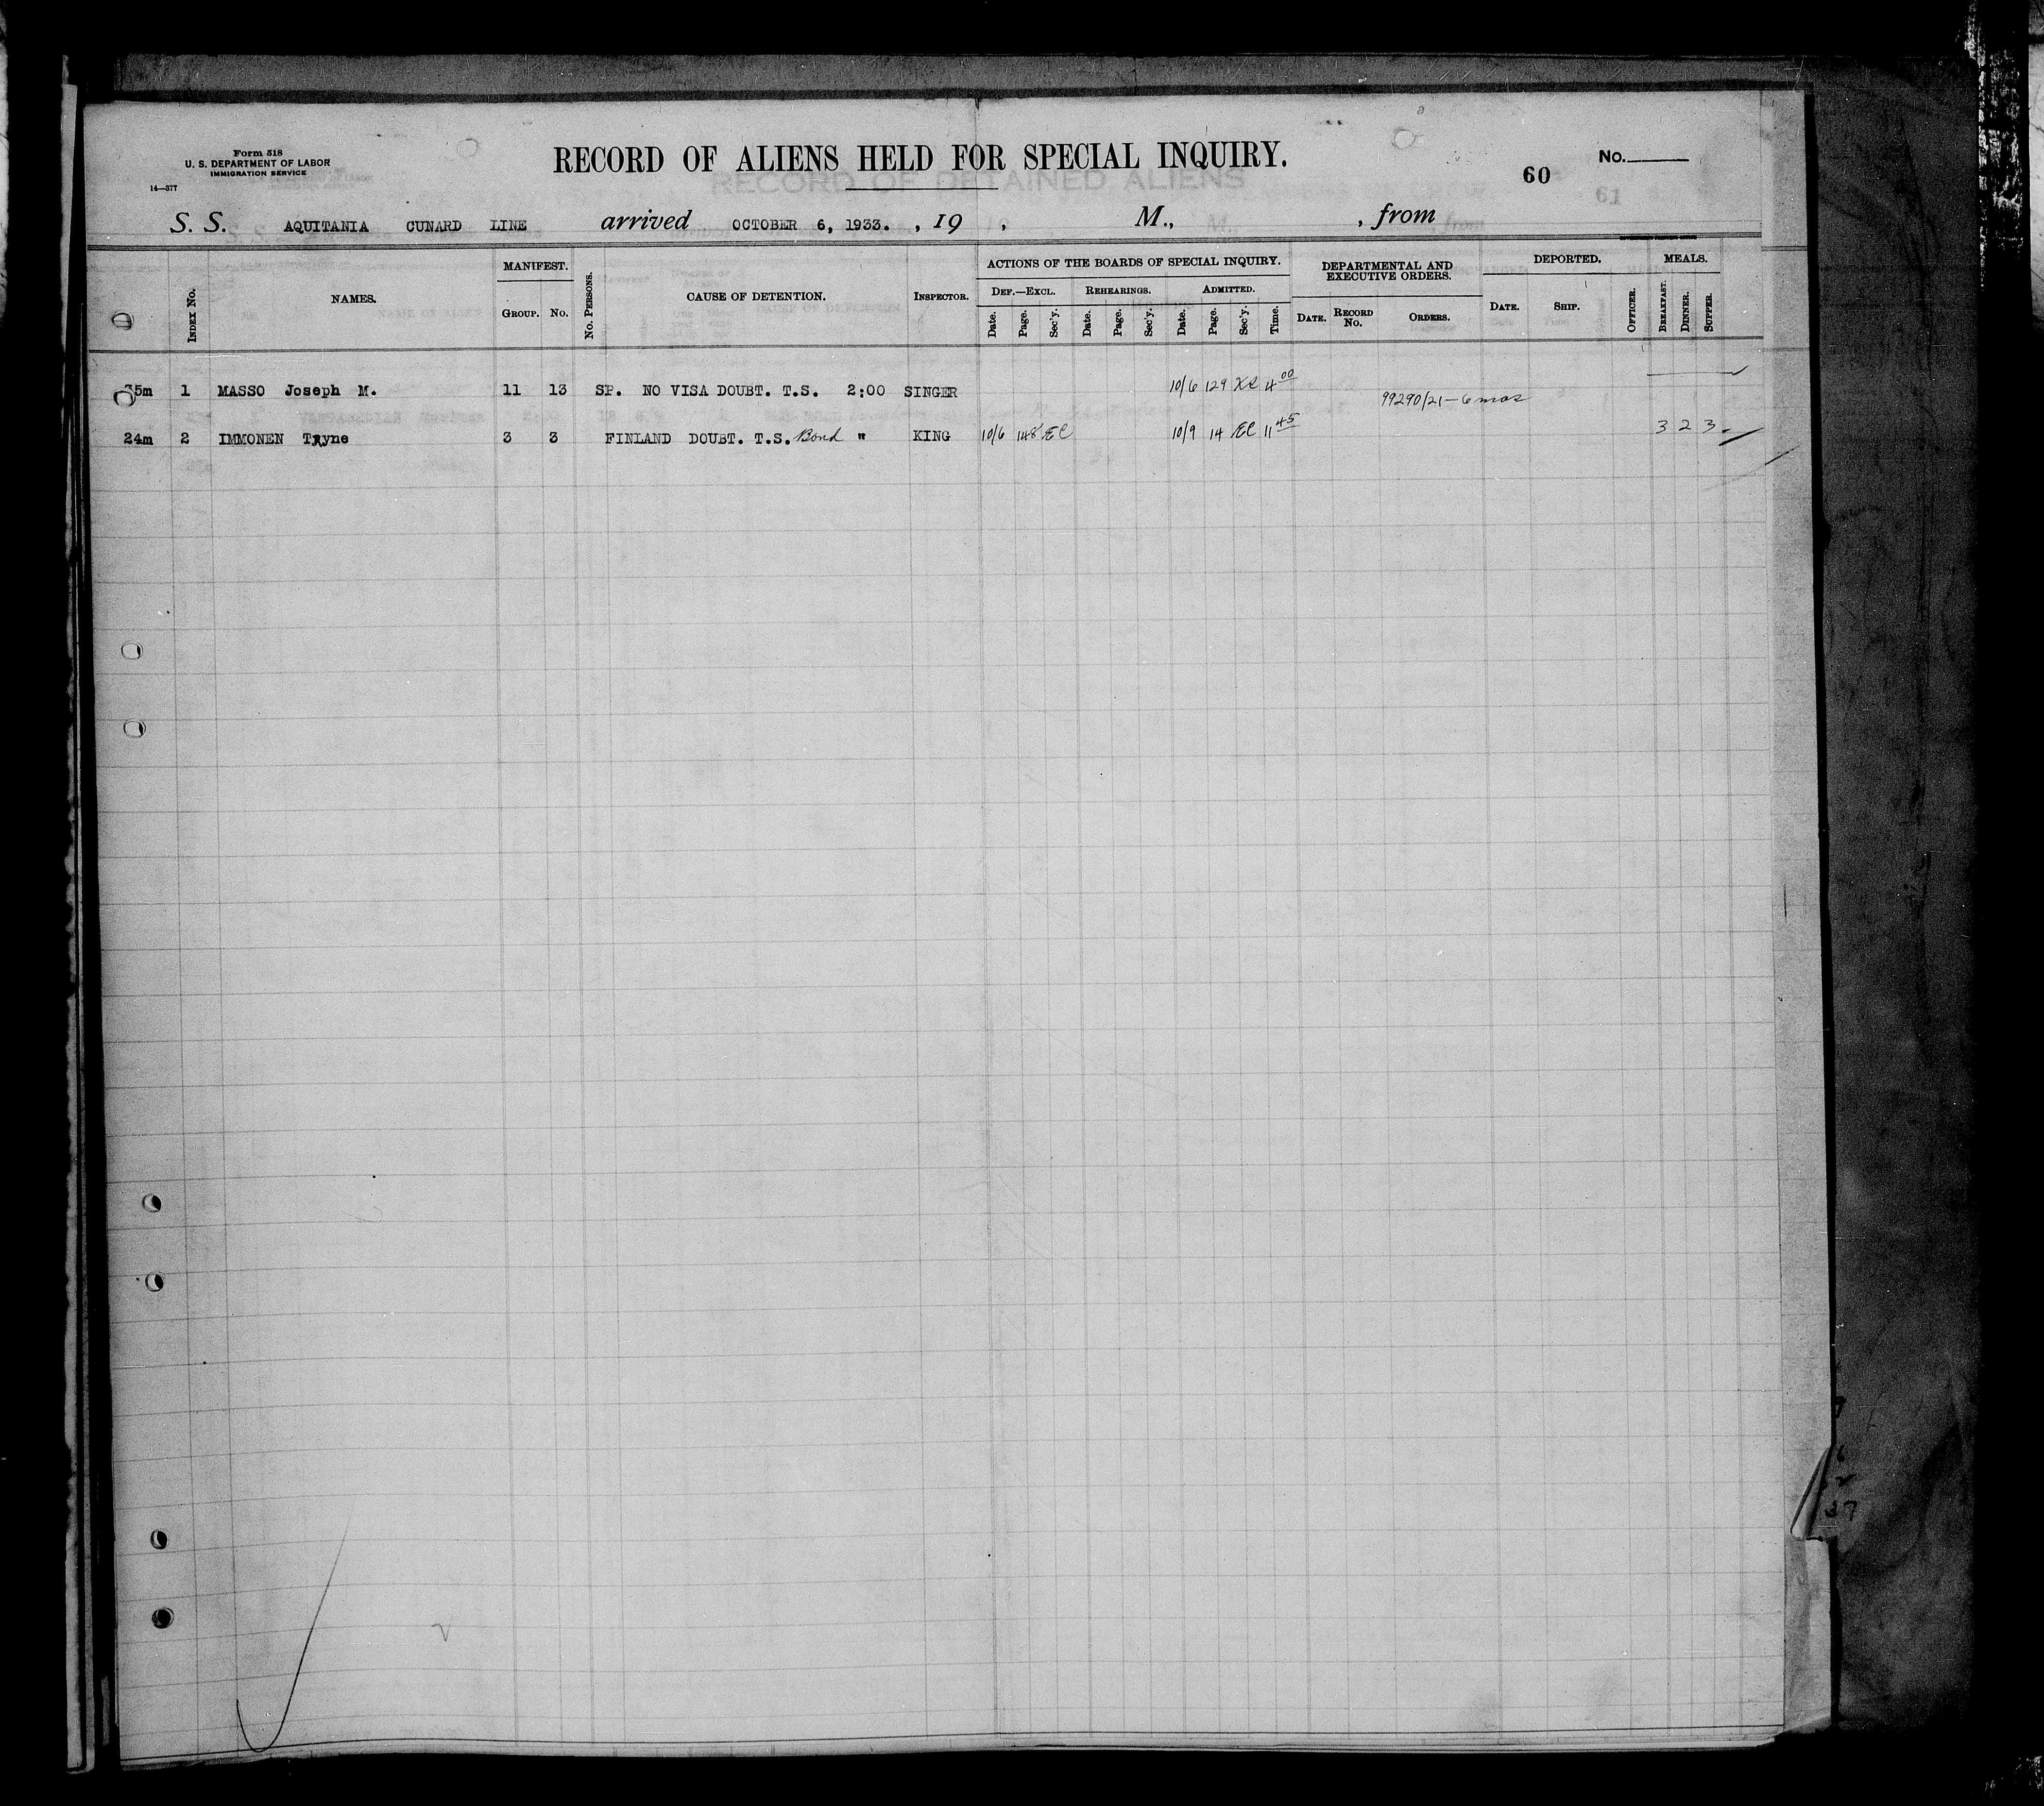 Form 518
U. S. DEPARTMENT OF LABOR
IMMIGRATION SERVICE
14—377
RECORD OF ALIENS HELD FOR SPECIAL INQUIRY.
No.
60
61
RECORD OF DETAINED ALIENS
S. S. AQUITANIA CUNARD LINE arrived OCTOBER 6, 1933. , 19 , M., , from
INDEX No. NAMES. MANIFEST. GROUP. No. No. PERSONS. CAUSE OF DETENTION. INSPECTOR. ACTIONS OF THE BOARDS OF SPECIAL INQUIRY. DEPARTMENTAL AND EXECUTIVE ORDERS. DEPORTED. MEALS.
DEF.—EXCL. REHEARINGS. ADMITTED.
Date. Page. Sec'y. Date. Page. Sec'y. Date. Page. Sec'y. Time. DATE. RECORD No. ORDERS. DATE. SHIP. OFFICER. BREAKFAST. DINNER. SUPPER.
35m 1 MASSO Joseph M. 11 13 SP. NO VISA DOUBT. T.S. 2:00 SINGER 10/6 129 4 00 99290/21 — 6 mos
24m 2 IMMONEN Tryne 3 3 FINLAND DOUBT. T.S. Bond " KING 10/6 148 EC 10/9 14 EC 11 45 3 2 3
37